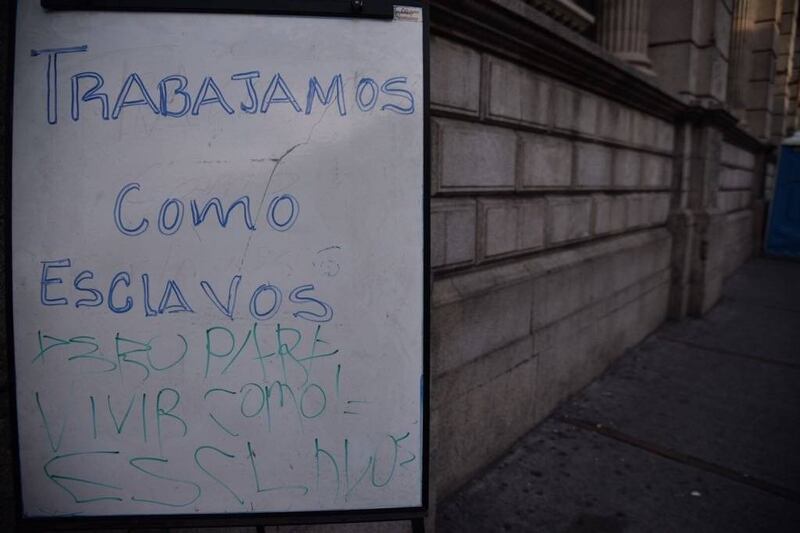 TRABAJAMOS
COMO
ESCLAVOS
PERO PARE
VIVIR COMO!
ESCLAVOS